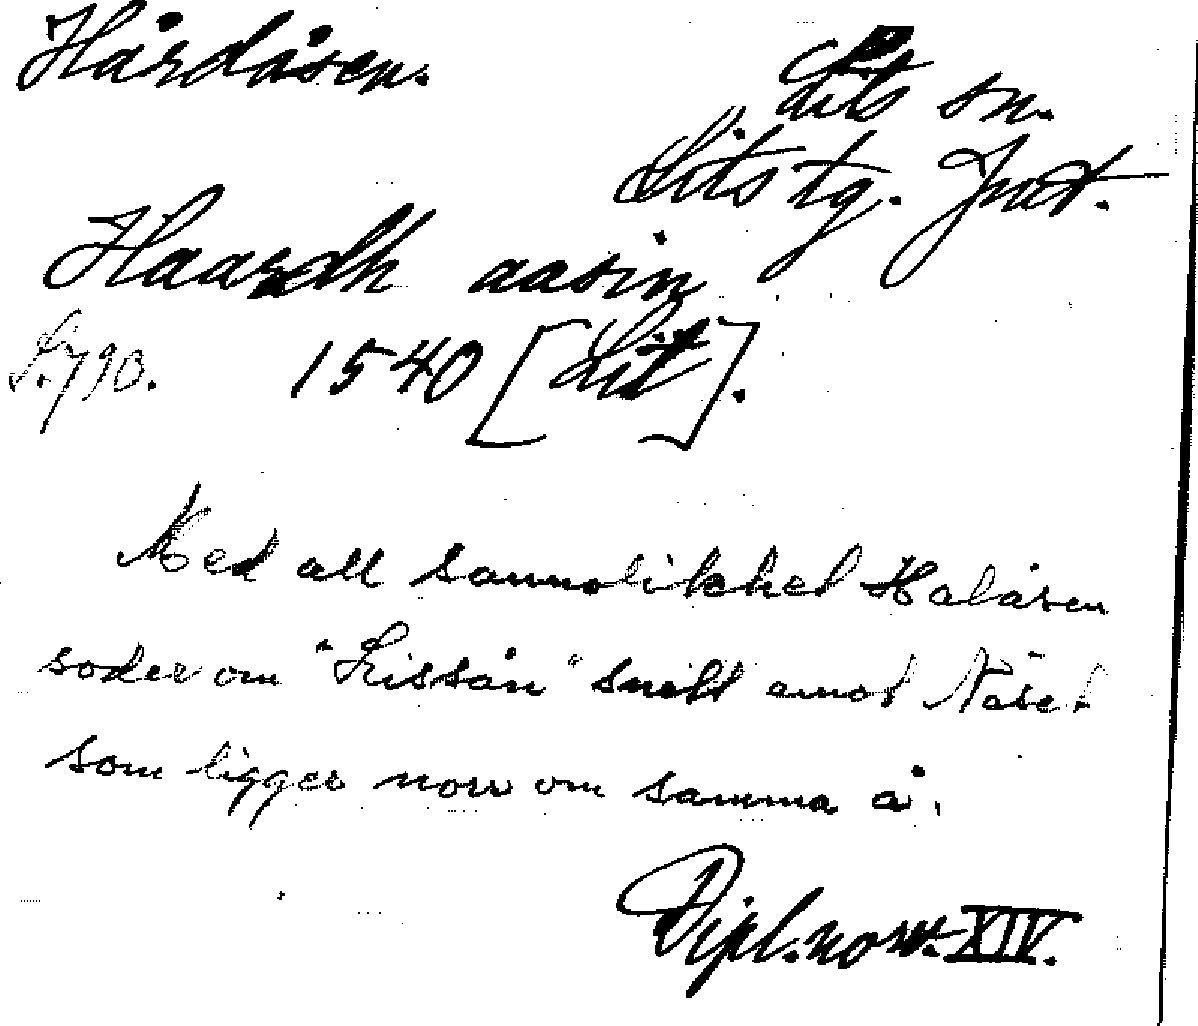 Hårdåsen.
Lits sn.
Lits tg. Jmt.
Haardh aasin
S. 790. 1540 [Lit].
Med all sannolikhet Halåsen
söder om "Kissån" snett emot Näset
som ligger norr om samma å.
Dipl. norv. XIV.